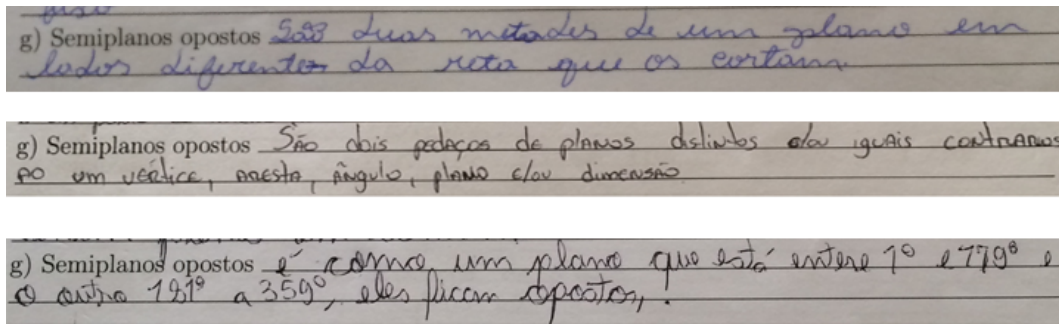 g) Semiplanos opostos São duas metades de um plano em
lados diferentes da reta que os cortam.
g) Semiplanos opostos São dois pedaços de planos distintos e/ou iguais contrarios
ao um vértice, aresta, ângulo, plano e/ou dimensão
g) Semiplanos opostos é como um plano que está entre 1º e 179º e
o outro 181º a 359º, eles ficam opostos, !